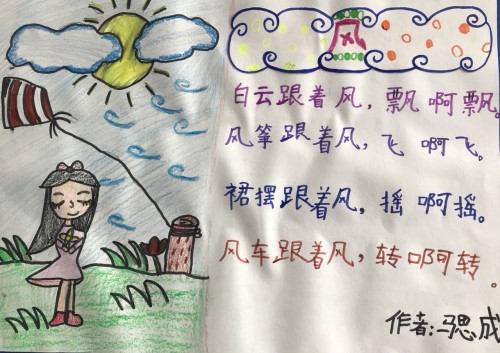 风
白云跟着风，飘啊飘。
风筝跟着风，飞啊飞。
裙摆跟着风，摇啊摇。
风车跟着风，转啊转。
作者：马思成